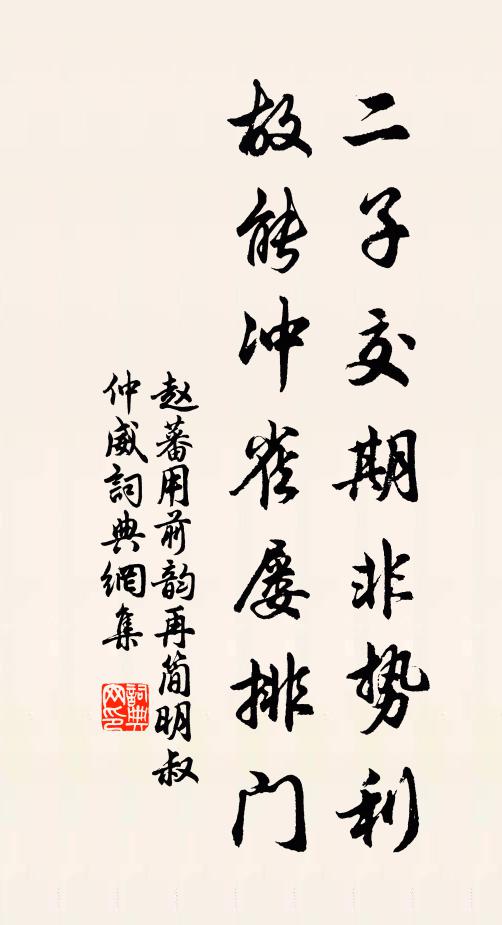 二子交期非势利
故能冲雀屡排门
赵蕃用前韵再简明叔
仲威词典網集
詞典网印